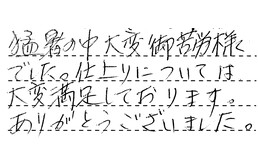 猛暑の中大変御苦労様
でした。仕上りについては
大変満足しております。
ありがとうございました。